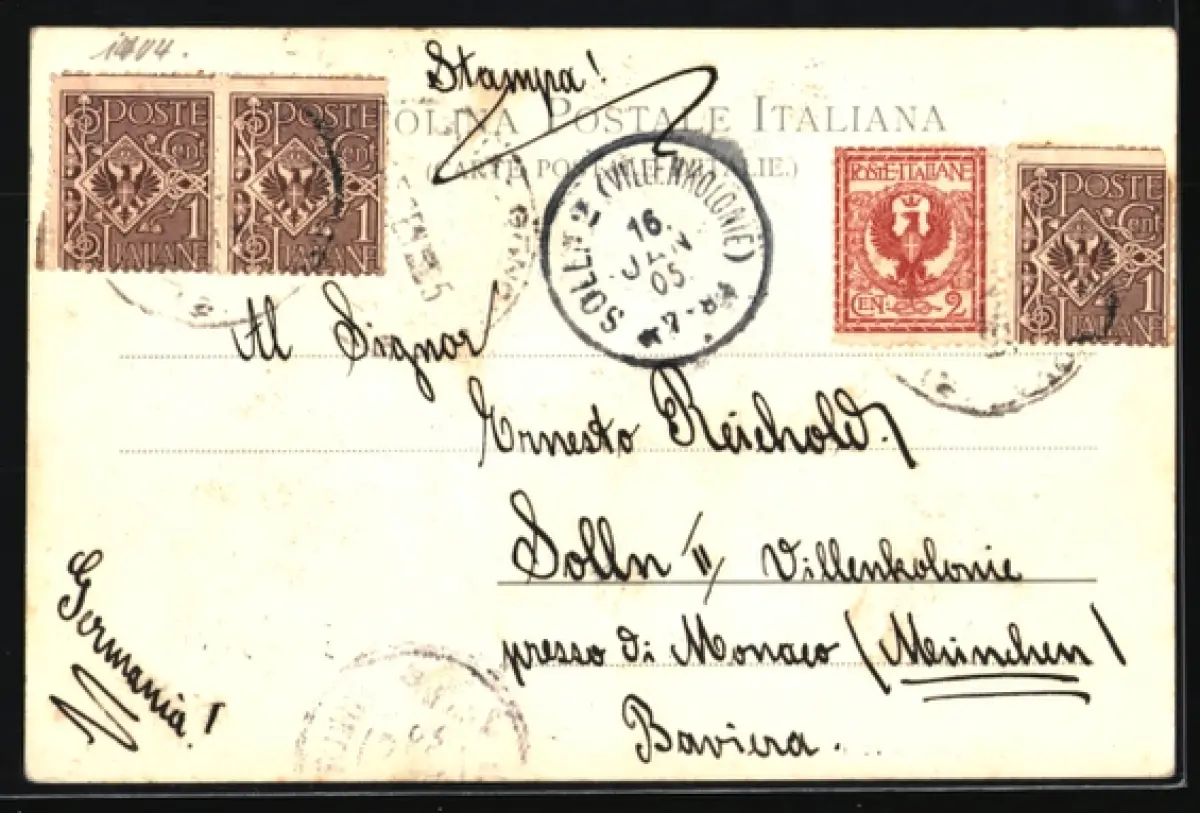 1904.
Stampa!
POSTE
Cent
1
ITALIANE
POSTE
Cent
1
ITALIANE
POSTALE ITALIANA
SOLLN 2 (VILLENKOLONIE)
16
JAN
05
POSTE-ITALIANE
CEN. 2
POSTE
Cent
1
ITALIANE
Al Signor
Ernesto Reichold.
Solln II, Villenkolonie
presso di Monaco (München)
Baviera.
Germania!
05